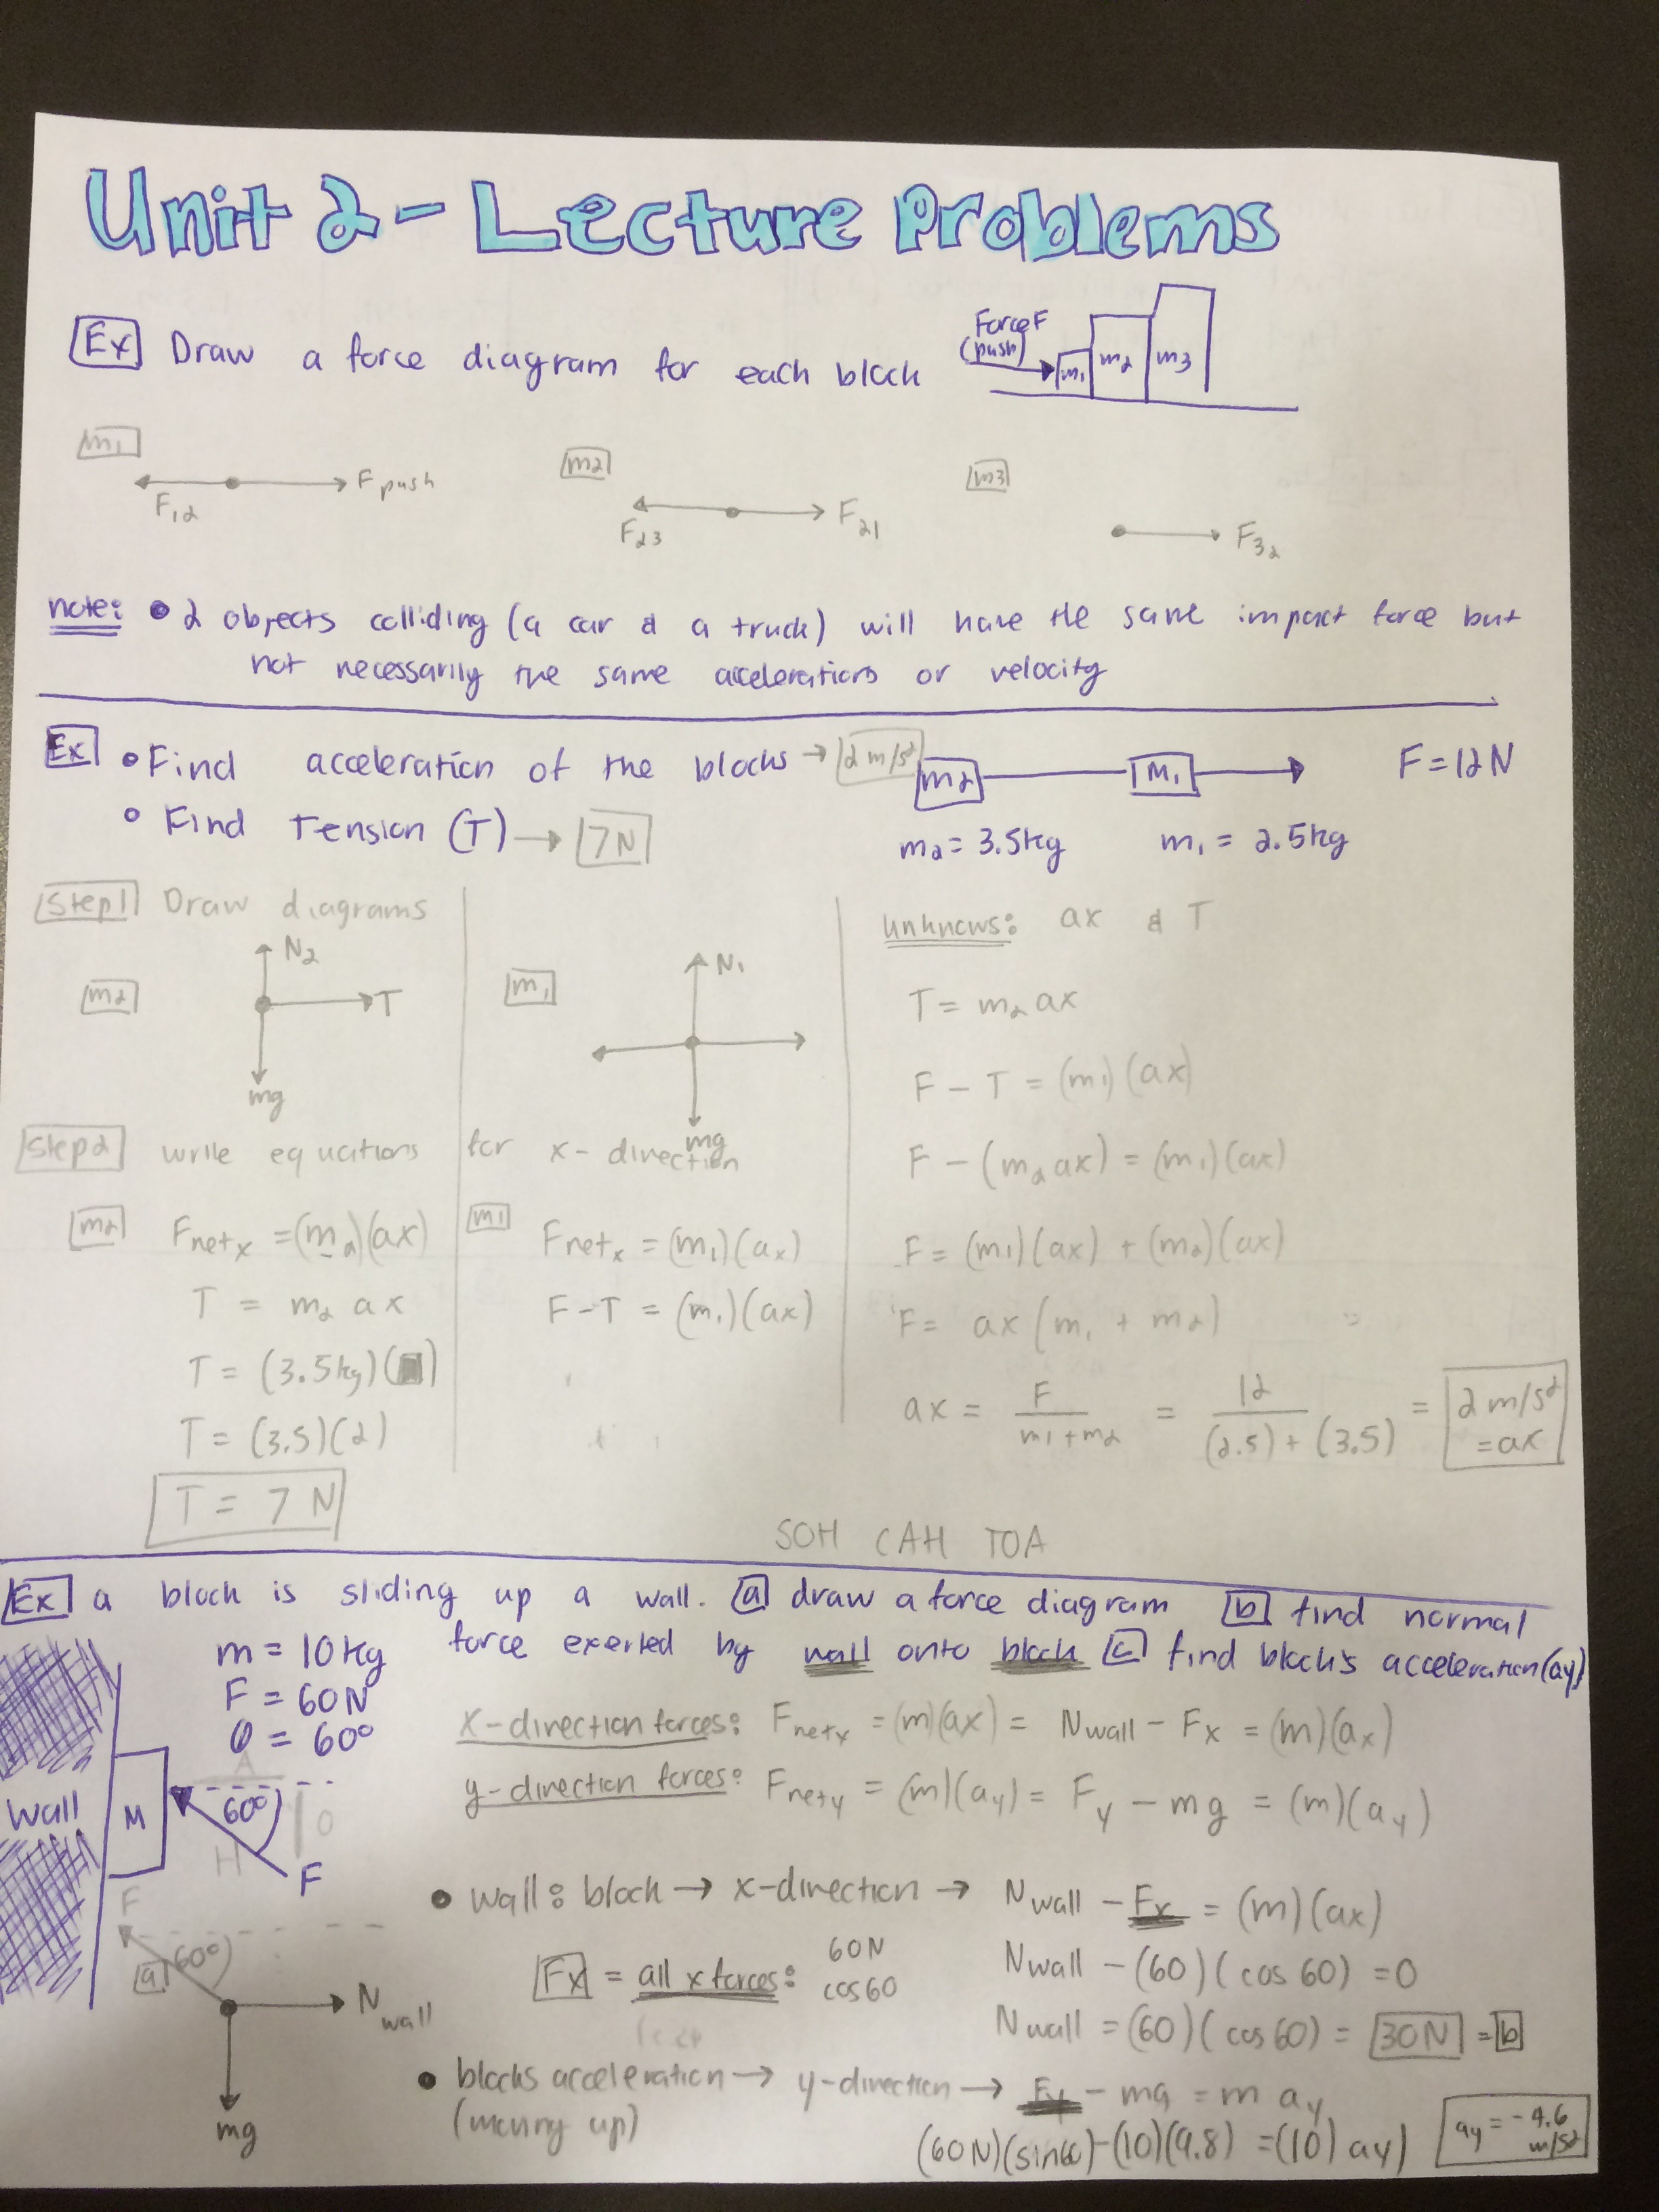 Unit 2 - Lecture Problems
Ex Draw a force diagram for each block
Force F
(push)
m1 m2 m3
m1
F12 F push
m2
F23 F21
m3
F32
note: • 2 objects colliding (a car & a truck) will have the same impact force but
not necessarily the same accelerations or velocity
Ex • Find acceleration of the blocks → 2 m/s²
• Find Tension (T) → 7N
m2 m1 F = 12N
m2 = 3.5kg m1 = 2.5kg
Step 1 Draw diagrams
m2 N2 T mg
m1 N1 mg
Step 2 write equations for x-direction
m2 Fnetx = (m2)(ax)
T = m2 ax
T = (3.5kg)( )
T = (3.5)(2)
T = 7 N
m1 Fnetx = (m1)(ax)
F - T = (m1)(ax)
unknowns: ax & T
T = m2 ax
F - T = (m1)(ax)
F - (m2 ax) = (m1)(ax)
F = (m1)(ax) + (m2)(ax)
F = ax (m1 + m2)
ax = F / m1 + m2 = 12 / (2.5) + (3.5) = 2 m/s² = ax
SOH CAH TOA
Ex a block is sliding up a wall. a draw a force diagram b find normal
force exerted by wall onto block c find block's acceleration (ay)
m = 10 kg
F = 60N
θ = 60°
wall M A 60° O H F
x-direction forces: Fnetx = (m)(ax) = Nwall - Fx = (m)(ax)
y-direction forces: Fnety = (m)(ay) = Fy - mg = (m)(ay)
F 60°
a
N wall
mg
• wall : block → x-direction → Nwall - Fx = (m)(ax)
Fx = all x forces: 60N cos60
Nwall - (60)(cos 60) = 0
Nwall = (60)(cos 60) = 30N = b
• blocks acceleration → y-direction → Fy - mg = m ay
(moving up)
(60N)(sin60) - (10)(9.8) = (10) ay)
ay = -4.6 m/s²